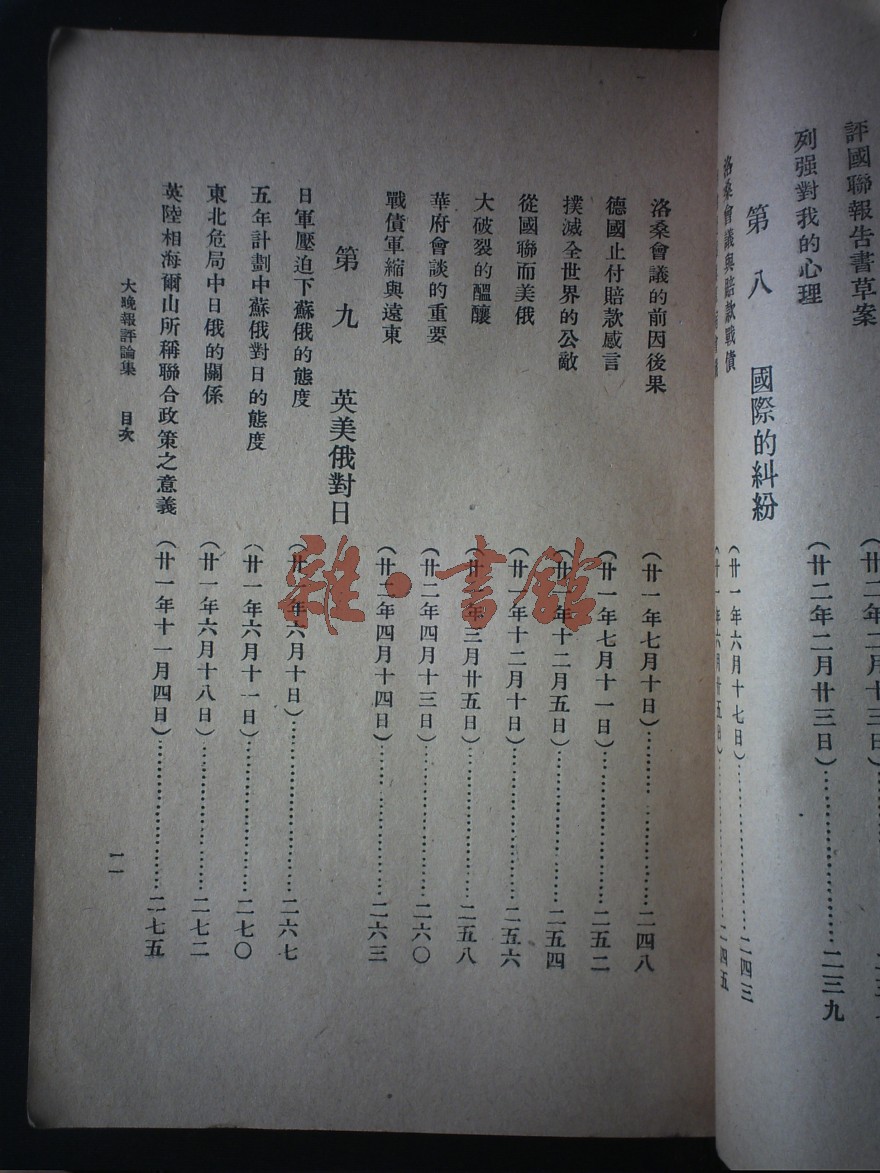 評國聯報告書草案(廿二年二月十三日)
列强對我的心理(廿二年二月廿三日)……………………二三九
第八 國際的糾紛
洛桑會議與賠款戰債(廿一年六月十七日)……………………二四三
(廿一年六月廿五日)……………………二四五
洛桑會議的前因後果(廿一年七月十日)……………………二四八
德國止付賠款感言(廿一年七月十一日)……………………二五二
撲滅全世界的公敵(廿一年十二月五日)……………………二五四
從國聯而美俄(廿一年十二月十日)……………………二五六
大破裂的醞釀(廿二年三月廿五日)……………………二五八
華府會談的重要(廿二年四月十三日)……………………二六〇
戰債軍縮與遠東(廿二年四月十四日)……………………二六三
第九 英美俄對日
日軍壓迫下蘇俄的態度(廿一年六月十日)……………………二六七
五年計劃中蘇俄對日的態度(廿一年六月十一日)……………………二七〇
東北危局中日俄的關係(廿一年六月十八日)……………………二七二
英陸相海爾山所稱聯合政策之意義(廿一年十一月四日)……………………二七五
大晚報評論集 目次
一一
雜·書館